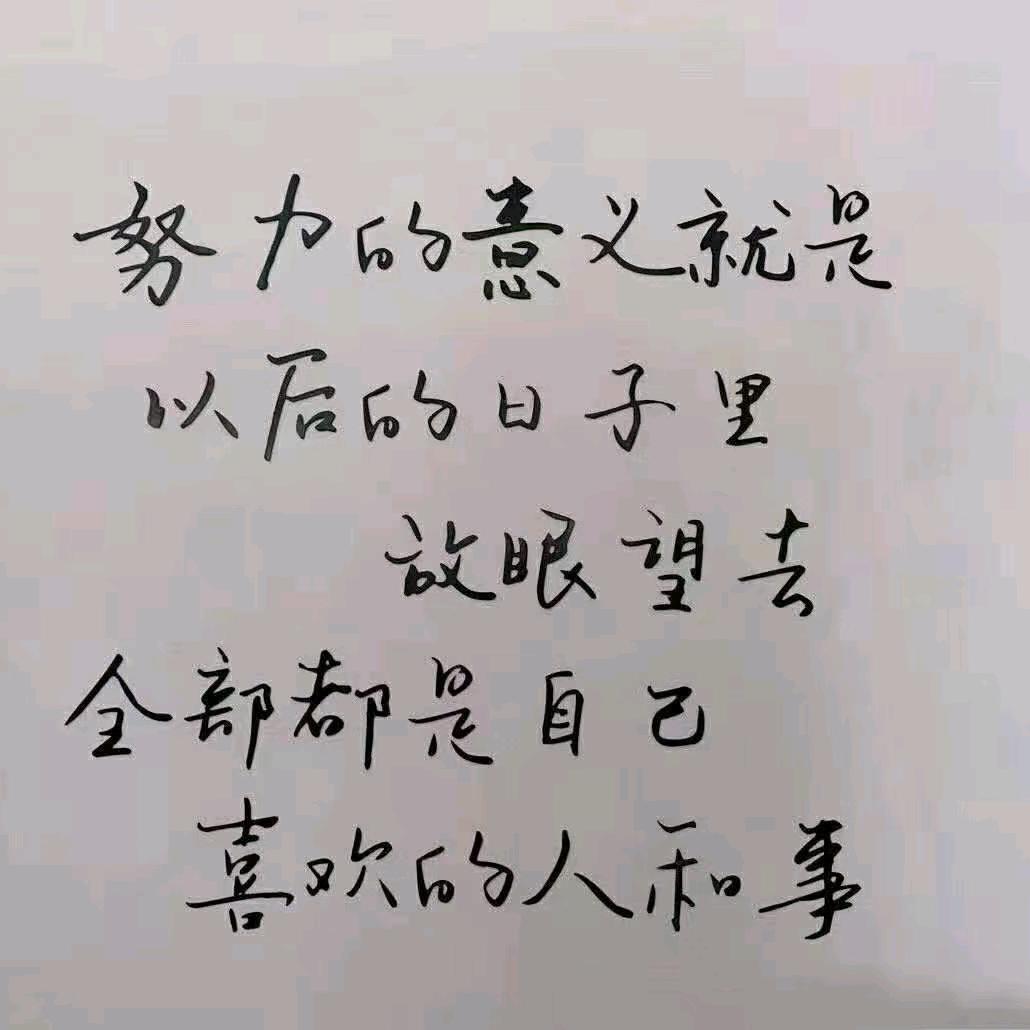 努力的意义就是
以后的日子里
放眼望去
全部都是自己
喜欢的人和事